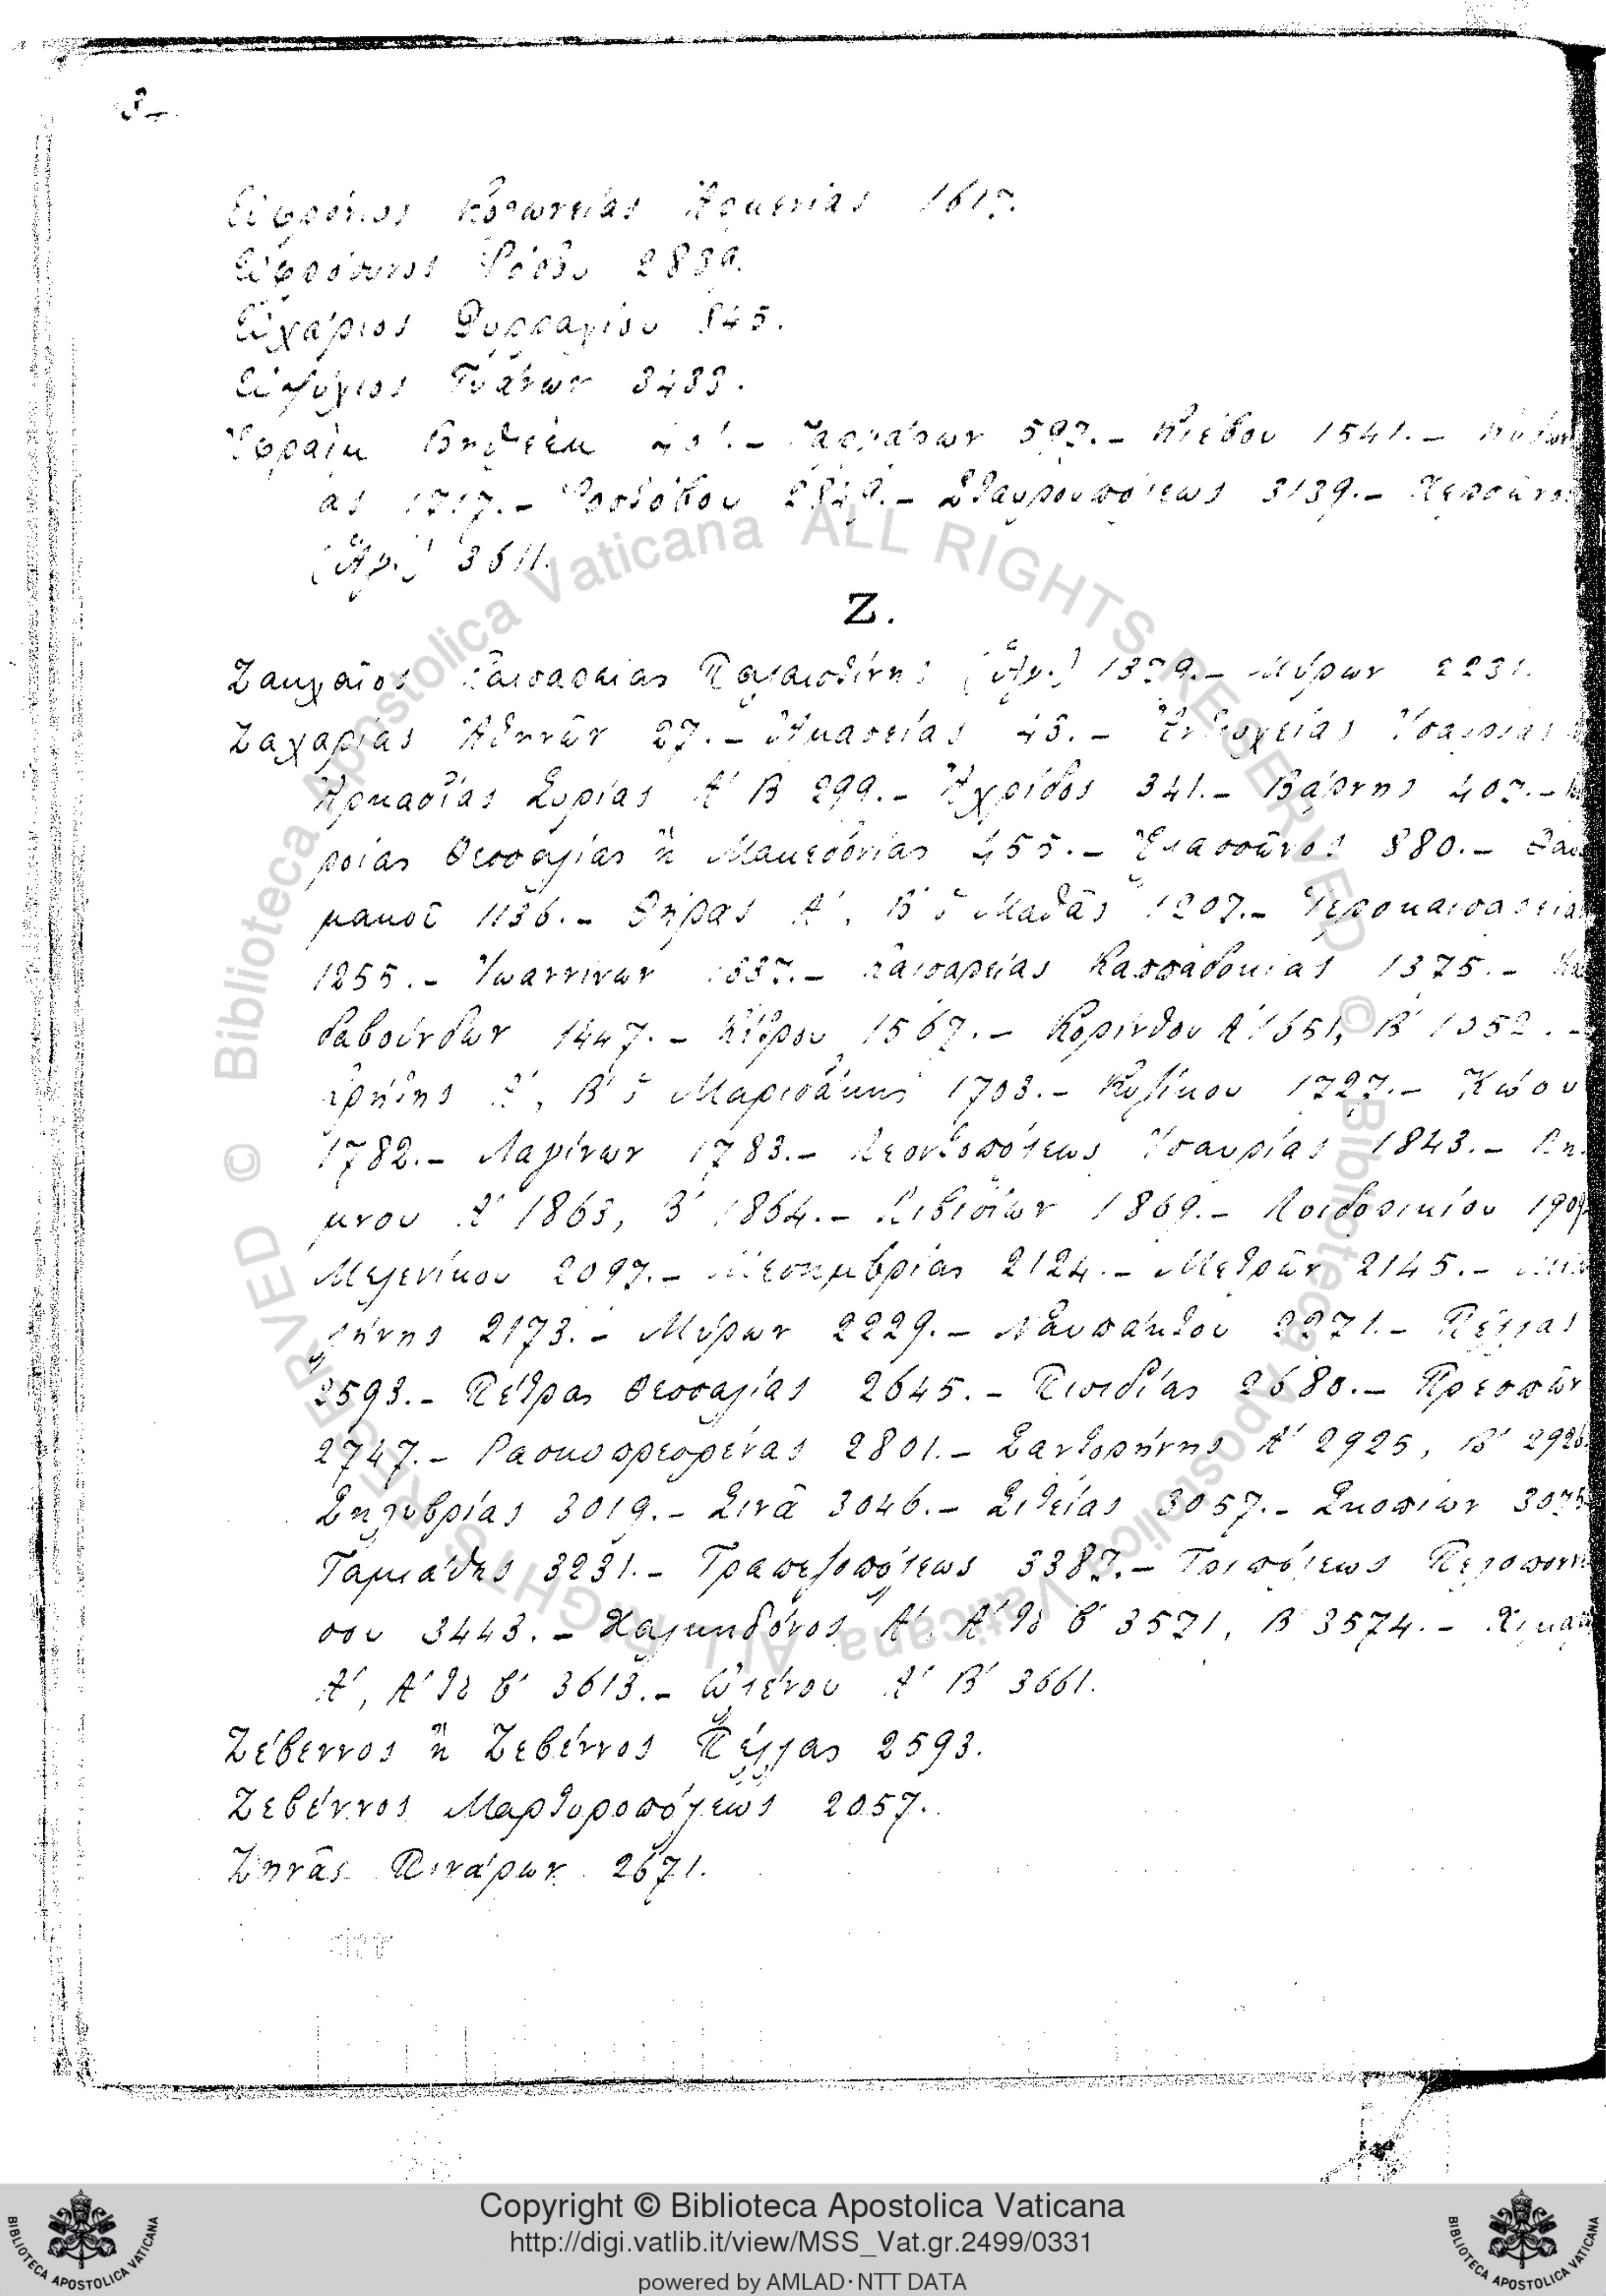 Εὐφρόνιος Κολωνείας Ἀρμενίας 1617.
Εὐφρόσυνος Ῥόδου 2839.
Εὐχάριος Δυρραχίου 845.
Εὐψύχιος Τυάνων 3483.
Ἐφραὶμ Βηθλεὲμ Γαγγάρων 592.- Κιέβου 1541.-
ας 1717.- Ῥοστόβου 2849.- Σταυρουπόλεως 3139.- Χερσῶνος
(Ἁγ.) 3611.
Ζ.
Ζακχαῖος Καισαρείας Παλαιστίνης (Ἁγ.) 1329.- Μύρων 2231.
Ζαχαρίας Ἀθηνῶν 27.- Ἀμασείας 43.- Ἀντιοχείας Ἰσαυρίας
Ἀρκαδίας Συρίας Α΄ Β΄ 299.- Ἀχρίδος 341.- Βάρνης 402.-
ροίας Θεσσαλίας ἢ Μακεδονίας 455.- Ἐλασσῶνος 880.-
μακοῦ 1136.- Θήρας Α΄, Β΄ ὁ Μαθᾶς 1207.- Ἱεροκαισαρείας
1255.- Ἰωαννίνων 1337.- Καισαρείας Καππαδοκίας 1375.-
δαβούνδων 1447.- Κίτρου 1567.- Κορίνθου Α΄ 1651, Β΄ 1652.-
Κρήτης Α΄, Β΄ ὁ Μαριδάκης 1703.- Κυζίκου 1727.- Κώου
1782.- Λαγίνων 1783.- Λεοντοπόλεως Ἰσαυρίας 1843.- Λή-
μνου Α΄ 1863, Β΄ 1864.- Λιβισίων 1869.- Λοιδορικίου
Μελενίκου 2097.- Μεσημβρίας 2124.- Μετρῶν 2145.- Μιτυ
λήνης 2173.- Μύρων 2229.- Ναυπάκτου 2271.- Πέλλας
2593.- Πέτρας Θεσσαλίας 2645.- Πισιδίας 2680.- Πρεσπῶν
2747.- Ρασκοπρεσρένας 2801.- Σαντορήνης Α΄ 2925, Β΄ 2926.
Σηλυβρίας 3019.- Σινᾶ 3046.- Σιτείας 3057.- Σκοπίων 3075
Ταμιάθης 3231.- Τραπεζοπόλεως 3382.- Τριπόλεως Πελοποννή
σου 3443.- Χαλκηδόνος Α΄, Α΄ τὸ β΄ 3571, Β΄ 3574.-
Α΄, Α΄ τὸ β΄ 3613.- Ὠλένου Α΄ Β΄ 3661.
Ζέβεννος ἢ Ζεβέννος Πέλλας 2593.
Ζεβέννος Μαρτυροπόλεως 2057.
Ζηνᾶς Πινάρων 2671.
© Biblioteca Apostolica Vaticana ALL RIGHTS RESERVED © Biblioteca Apostolica Vaticana ALL RIGHTS RESERVED
Copyright © Biblioteca Apostolica Vaticana
http://digi.vatlib.it/view/MSS_Vat.gr.2499/0331
powered by AMLAD·NTT DATA
BIBLIOTECA APOSTOLICA VATICANA
BIBLIOTECA APOSTOLICA VATICANA